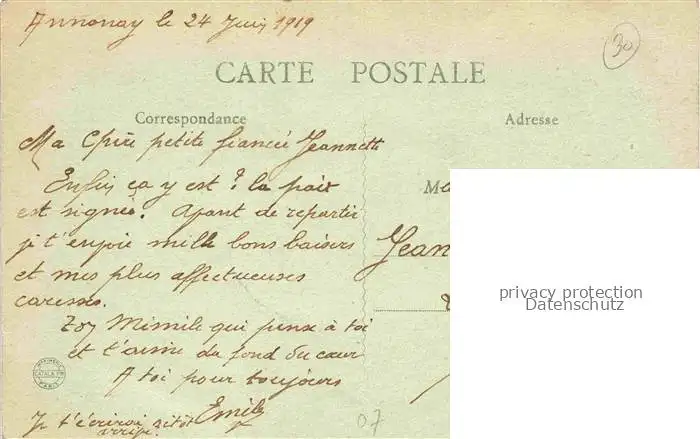 Annonay le 24 Juin 1919
30
CARTE POSTALE
Correspondance
Adresse
Ma Chère petite fiancée Jeannette
Enfin ça y est ? la paix
est signée. Avant de repartir
je t'envoie mille bons baisers
et mes plus affectueuses
caresses.
Ton Mimile qui pense à toi
et t'aime du fond du cœur
A toi pour toujours
Emile
Je t'écrirai sitôt
arrivé.
M
Jean
privacy protection
Datenschutz
CATALA
PARIS
07